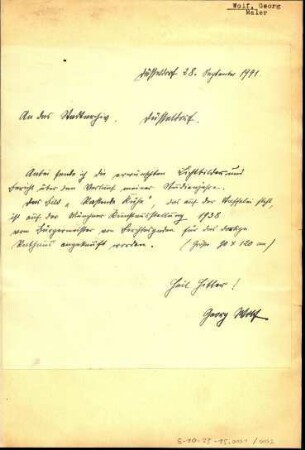 Wolf, Georg
Maler
Düsseldorf 28. September 1941.
An das Stadtarchiv. Düsseldorf.
Anbei sende ich die erwünschten Lichtbilder und
Bericht über den Verlauf meiner Studienjahre.
Das Bild „Rastende Kühe", das auf der Staffelei steht,
ist auf der Münchner Kunstausstellung 1938
vom Bürgermeister von Berchtesgaden für das dortige
Rathaus angekauft worden. (Größe 90 x 120 cm)
Heil Hitler!
Georg Wolf